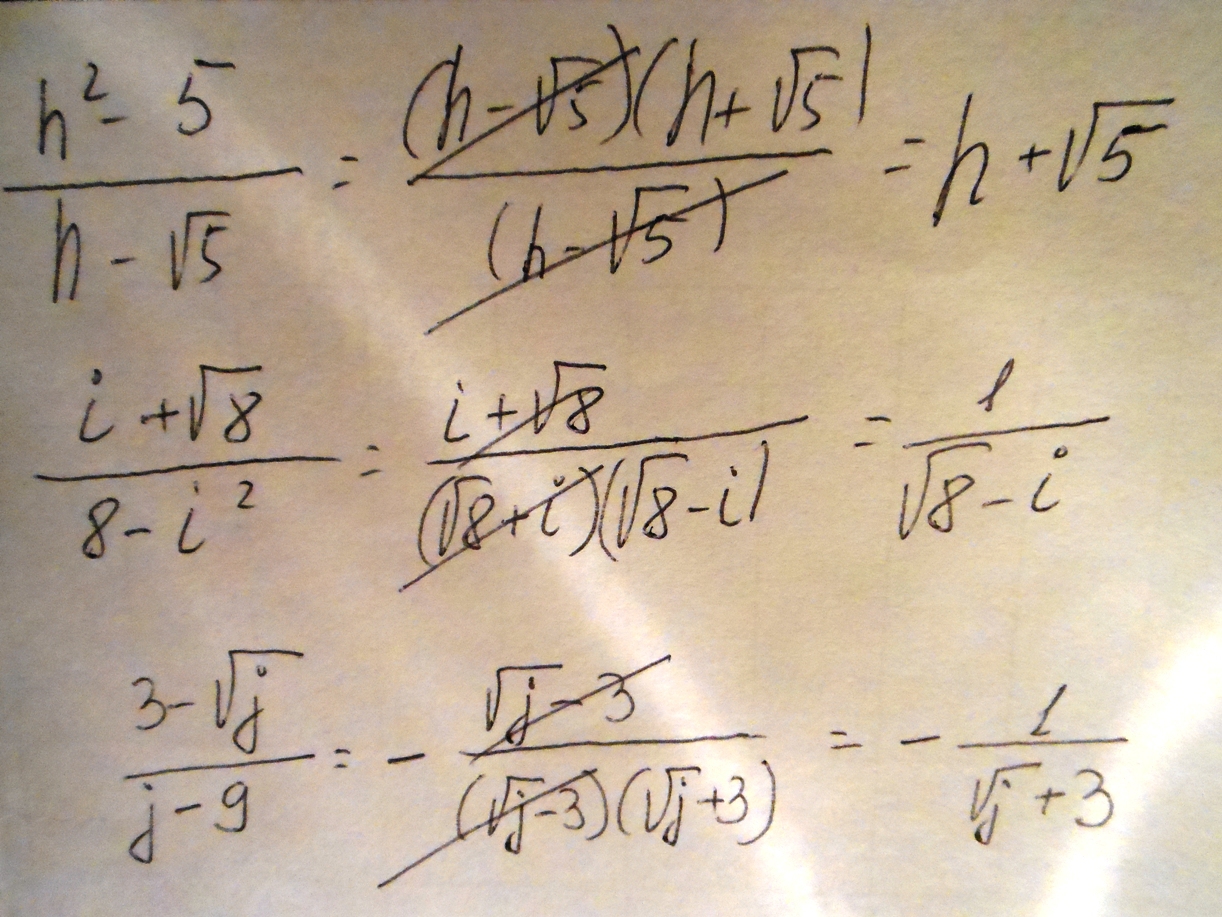 \frac{h^2 - 5}{h - \sqrt{5}} = \frac{(h - \sqrt{5})(h + \sqrt{5})}{(h - \sqrt{5})} = h + \sqrt{5}
\frac{i + \sqrt{8}}{8 - i^2} = \frac{i + \sqrt{8}}{(\sqrt{8} + i)(\sqrt{8} - i)} = \frac{1}{\sqrt{8} - i}
\frac{3 - \sqrt{j}}{j - 9} = - \frac{\sqrt{j} - 3}{(\sqrt{j} - 3)(\sqrt{j} + 3)} = - \frac{1}{\sqrt{j} + 3}